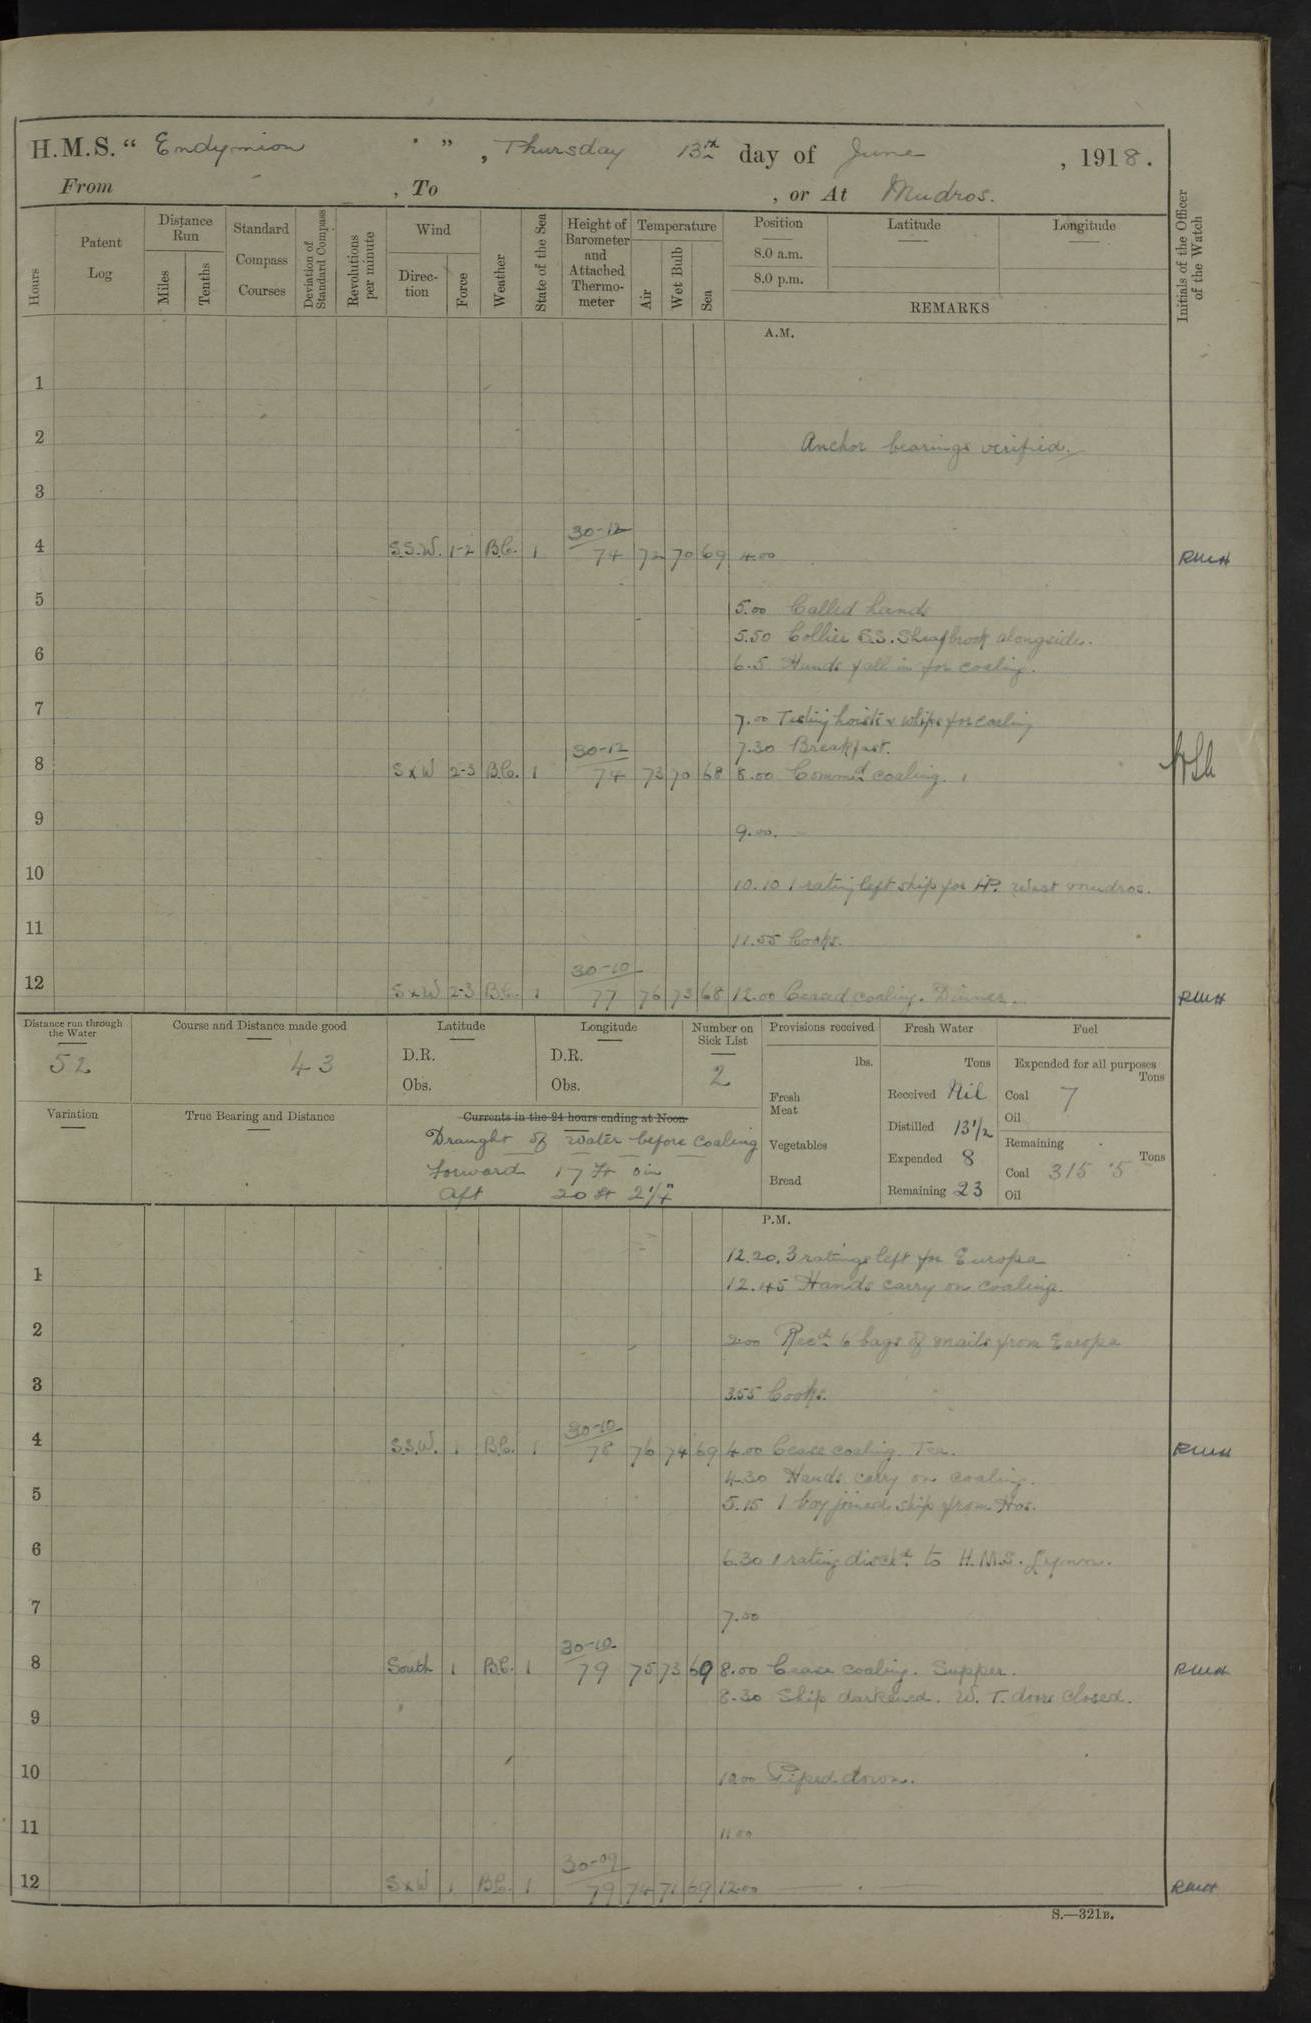 H.M.S. " Endymion " , Thursday 13th day of June , 1918.
From , To , or At Mudros.
Hours
Patent Log
Distance Run
Miles
Tenths
Standard Compass Courses
Deviation of Standard Compass
Revolutions per minute
Wind
Direction
Force
Weather
State of the Sea
Height of Barometer and Attached Thermometer
Temperature
Air
Wet Bulb
Sea
Position
8.0 a.m.
8.0 p.m.
Latitude
Longitude
REMARKS
Initials of the Officer of the Watch
A.M.
1
2 Anchor bearings verified.
3
30-12
4 S.S.W. 1-2 B.C. 1 74 72 70 69 4.00 RMH
5 5.00 Called hands
5.50 Collier S.S. Sheafbrook alongside.
6 6.5 Hands fall in for coaling.
7 7.00 Testing hoists & whips for coaling
30-12 7.30 Breakfast.
8 S x W 2-3 B.C. 1 74 73 70 68 8.00 Commd coaling.
9 9.00.
10 10.10 1 rating left ship for H.P. West Mudros.
11 11.55 Cooks.
30-10
12 S x W 2-3 B.C. 1 77 76 73 68 12.00 Ceased coaling. Dinner. RMH
Distance run through the Water
52
Course and Distance made good
43
Latitude
D.R.
Obs.
Longitude
D.R.
Obs.
Number on Sick List
2
Provisions received
lbs.
Fresh Meat
Vegetables
Bread
Fresh Water
Tons
Received Nil
Distilled 13½
Expended 8
Remaining 23
Fuel
Expended for all purposes
Tons
Coal 7
Oil
Remaining
Tons
Coal 315.5
Oil
Variation
True Bearing and Distance
Currents in the 24 hours ending at Noon
Draught of water before coaling
Forward 17 Ft 0in
Aft 20 ft 2¼"
P.M.
12.20. 3 ratings left for Europa
1 12.45 Hands carry on coaling.
2 2.00 Recd 6 bags of mails from Europa
3 3.55 Cooks.
30-10
4 S.S.W. 1 B.C. 1 78 76 74 69 4.00 Cease coaling. Tea. RMH
4.30 Hands carry on coaling.
5 5.15 1 boy joined ship from Hos.
6 6.30 1 rating dischd to H.M.S.
7 7.00
30-10
8 South 1 B.C. 1 79 75 73 69 8.00 Cease coaling. Supper. RMH
8.30 Ship darkened. W.T. doors closed.
9
10 10.00 Piped down.
11 11.00
30-09
12 S x W 1 B.C. 1 79 74 71 69 12.00 RMH
S.—321B.